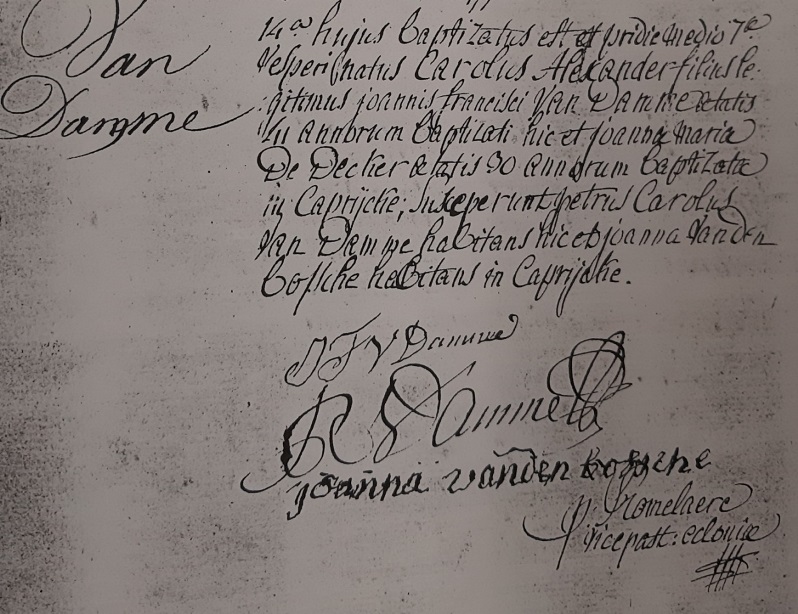 Van
Damme
14a hujus baptizatus est et pridie medio 7ae
Vesperi natus Carolus Alexander filius le-
gitimus joannis francisci Van Damme ætatis
annorum baptizati hic et joanna Maria
De Decker ætatis 30 annorum baptizatæ
in Caprijcke, susceperunt petrus Carolus
Van Damme habitans hic et joanna Vanden
bossche habitans in Caprijcke.
J F V Damme
P C V Damme
joanna vanden bossche
Romelaere
vicepast: ecloniæ